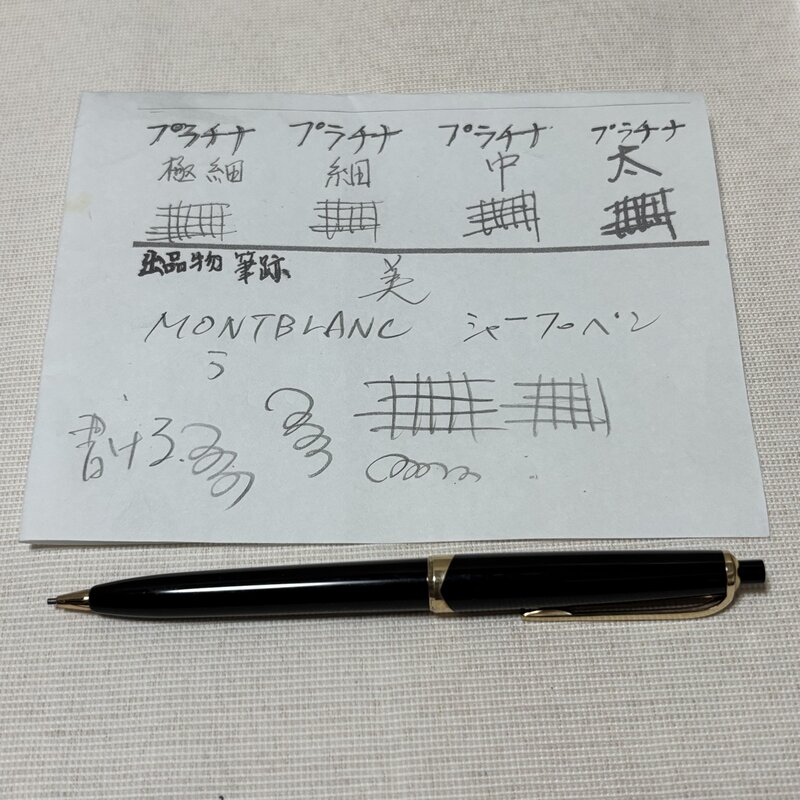 プラチナ プラチナ プラチナ プラチナ
極細 細 中 太
出品物 筆跡
美
MONTBLANC シャープペン
う
書ける